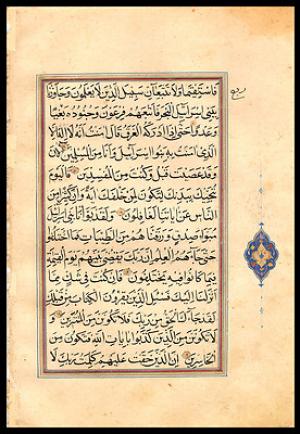 فاستقيما ولا تتبعان سبيل الذين لا يعلمون وجاوزنا
ببني اسرائيل البحر فاتبعهم فرعون وجنوده بغيا
وعدوا حتى اذا ادركه الغرق قال امنت انه لا اله الا
الذي امنت به بنوا اسرائيل وانا من المسلمين الان
وقد عصيت قبل وكنت من المفسدين فاليوم
ننجيك ببدنك لتكون لمن خلفك اية وان كثيرا من
الناس عن اياتنا لغافلون ولقد بوانا بني اسرائيل
مبوا صدق ورزقناهم من الطيبات فما اختلفوا
حتى جاءهم العلم ان ربك يقضي بينهم يوم القيمة
فيما كانوا فيه يختلفون فان كنت في شك مما
انزلنا اليك فسئل الذين يقرؤن الكتاب من قبلك
لقد جاءك الحق من ربك فلا تكونن من الممترين و
لا تكونن من الذين كذبوا بايات الله فتكون من
الخاسرين ان الذين حقت عليهم كلمت ربك لا